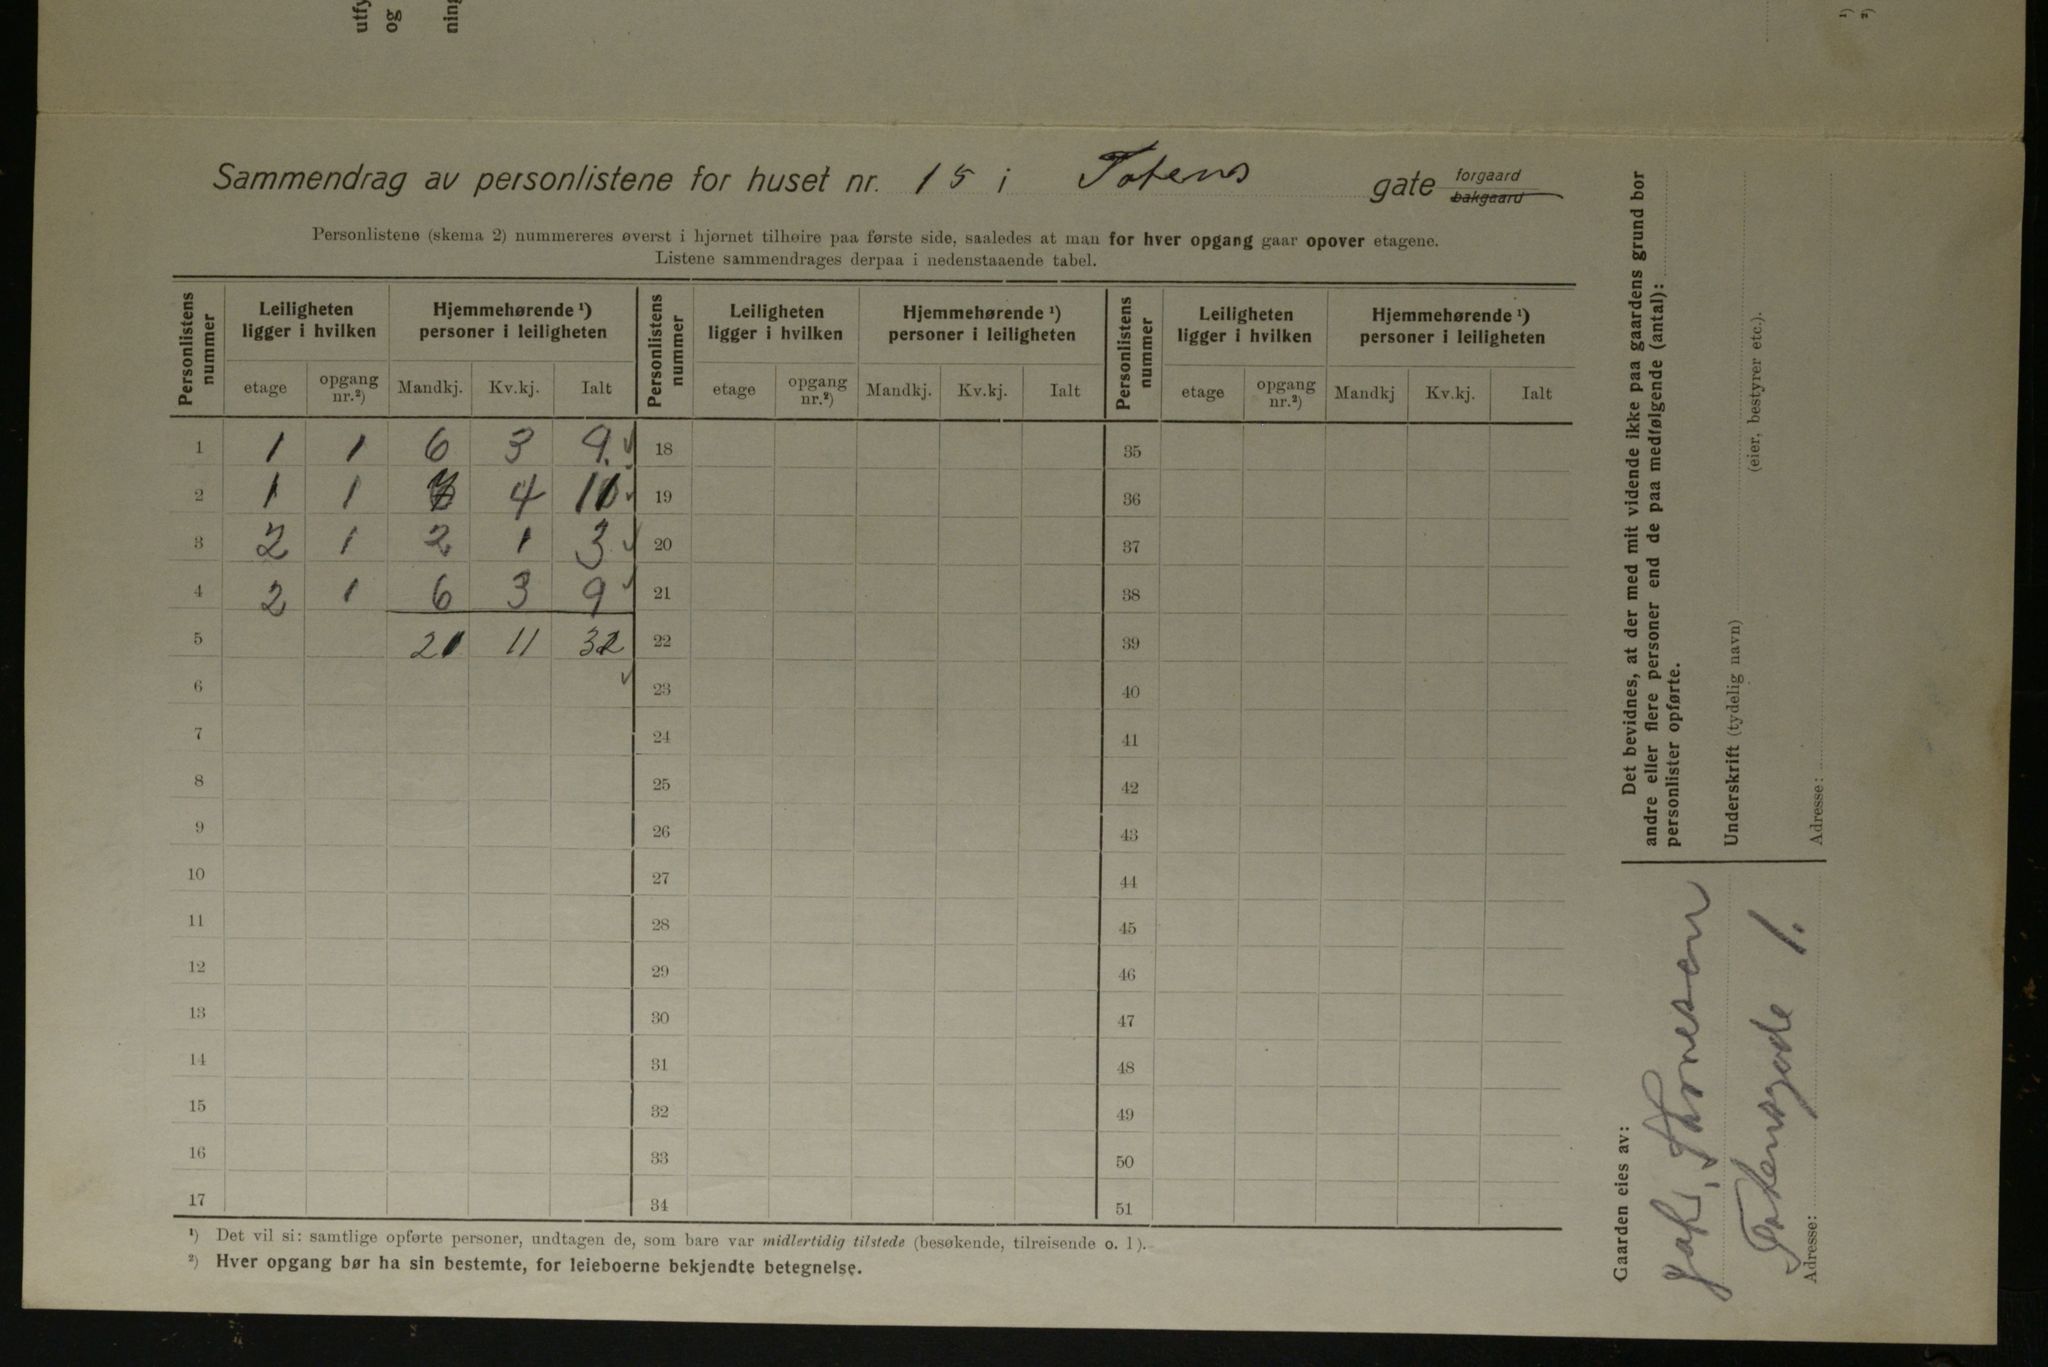 utfy
og
ning
¹)
²)
Sammendrag av personlistene for huset nr. 15 i Totens gate forgaard
bakgaard
Personlistene (skema 2) nummereres øverst i hjørnet tilhøire paa første side, saaledes at man for hver opgang gaar opover etagene.
Listene sammendrages derpaa i nedenstaaende tabel.
Personlistens nummer | Leiligheten ligger i hvilken | Hjemmehørende ¹) personer i leiligheten | Personlistens nummer | Leiligheten ligger i hvilken | Hjemmehørende ¹) personer i leiligheten | Personlistens nummer | Leiligheten ligger i hvilken | Hjemmehørende ¹) personer i leiligheten
etage | opgang nr.²) | Mandkj. | Kv.kj. | Ialt | etage | opgang nr.²) | Mandkj. | Kv.kj. | Ialt | etage | opgang nr.²) | Mandkj | Kv.kj. | Ialt
1 1 1 6 3 9. 18 35
2 1 1 4 11 19 36
3 2 1 2 1 3 20 37
4 2 1 6 3 9 21 38
5 21 11 32 22 39
6 23 40
7 24 41
8 25 42
9 26 43
10 27 44
11 28 45
12 29 46
13 30 47
14 31 48
15 32 49
16 33 50
17 34 51
¹) Det vil si: samtlige opførte personer, undtagen de, som bare var midlertidig tilstede (besøkende, tilreisende o. l).
²) Hver opgang bør ha sin bestemte, for leieboerne bekjendte betegnelse.
Det bevidnes, at der med mit vidende ikke paa gaardens grund bor
andre eller flere personer end de paa medfølgende (antal):
personlister opførte.
Underskrift (tydelig navn)
(eier, bestyrer etc.).
Adresse:
Gaarden eies av:
Totensgade 1.
Adresse: